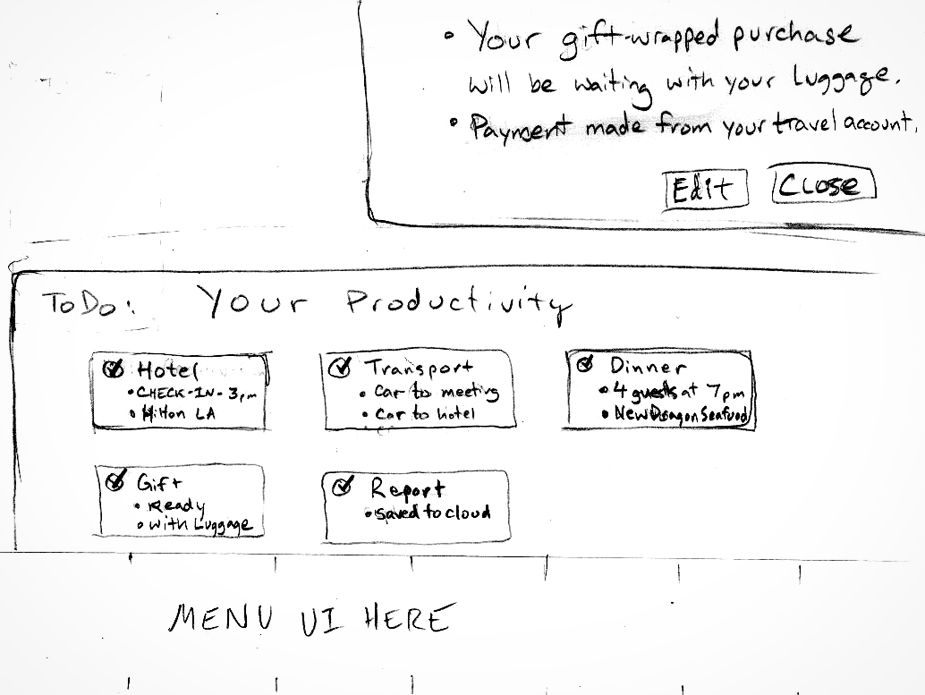 • Your gift-wrapped purchase
will be waiting with your Luggage.
• Payment made from your travel account.
Edit
Close
ToDo: Your Productivity
Hotel
• CHECK-IN - 3pm
• Hilton LA
Transport
• Car to meeting
• Car to hotel
Dinner
• 4 guests at 7pm
• New Dragon Seafood
Gift
• Ready
• with Luggage
Report
• saved to cloud
MENU UI HERE